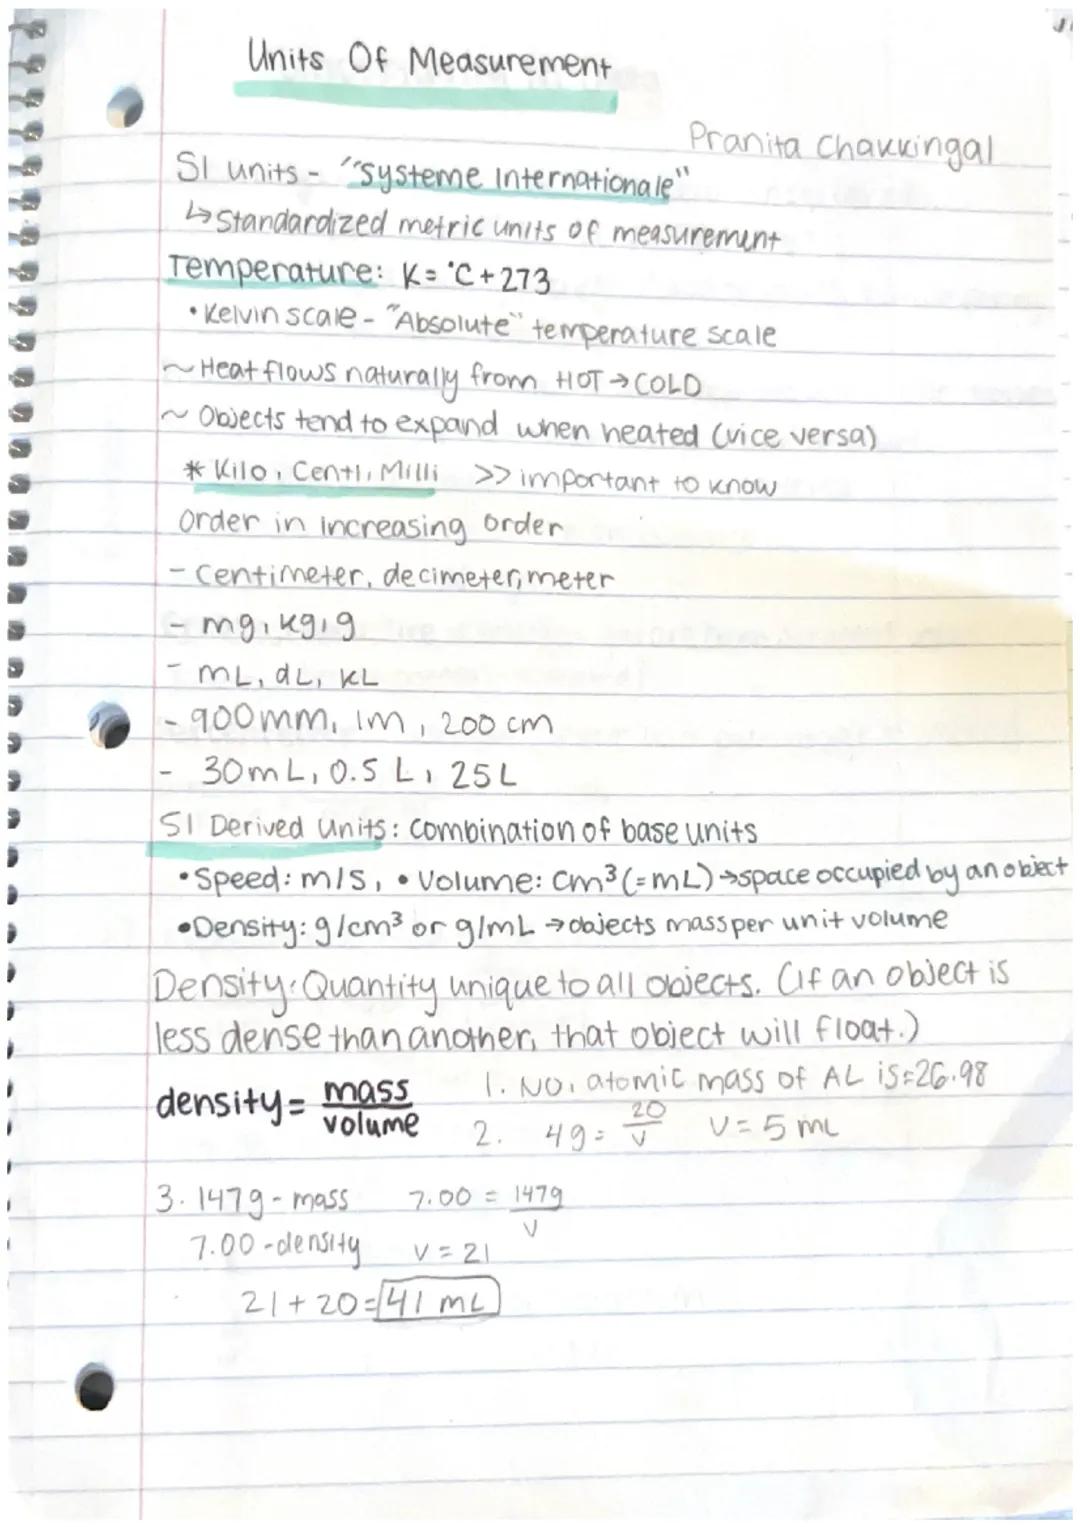 Units Of Measurement
Pranita Chakkingal
SI units - "Systeme Internationale"
↳ Standardized metric units of measurement
Temperature: K = °C + 273
• Kelvin scale - "Absolute" temperature scale
~ Heat flows naturally from HOT → COLD
~ Objects tend to expand when heated (vice versa)
* Kilo, Centi, Milli >> important to know
Order in increasing order
- Centimeter, decimeter, meter
- mg, kg, g
- mL, dL, kL
- 900 mm, 1m, 200 cm
- 30 mL, 0.5 L, 25 L
SI Derived Units: combination of base units
• Speed: m/s, • Volume: cm³ (=mL) → space occupied by an object
• Density: g/cm³ or g/mL → objects mass per unit volume
Density: Quantity unique to all objects. (If an object is
less dense than another, that object will float.)
density = mass/volume
1. No, atomic mass of AL is = 26.98
2. 4g = 20/V V = 5 mL
3. 147g - mass 7.00 = 147g/V
7.00 - density V = 21
21 + 20 = 41 mL